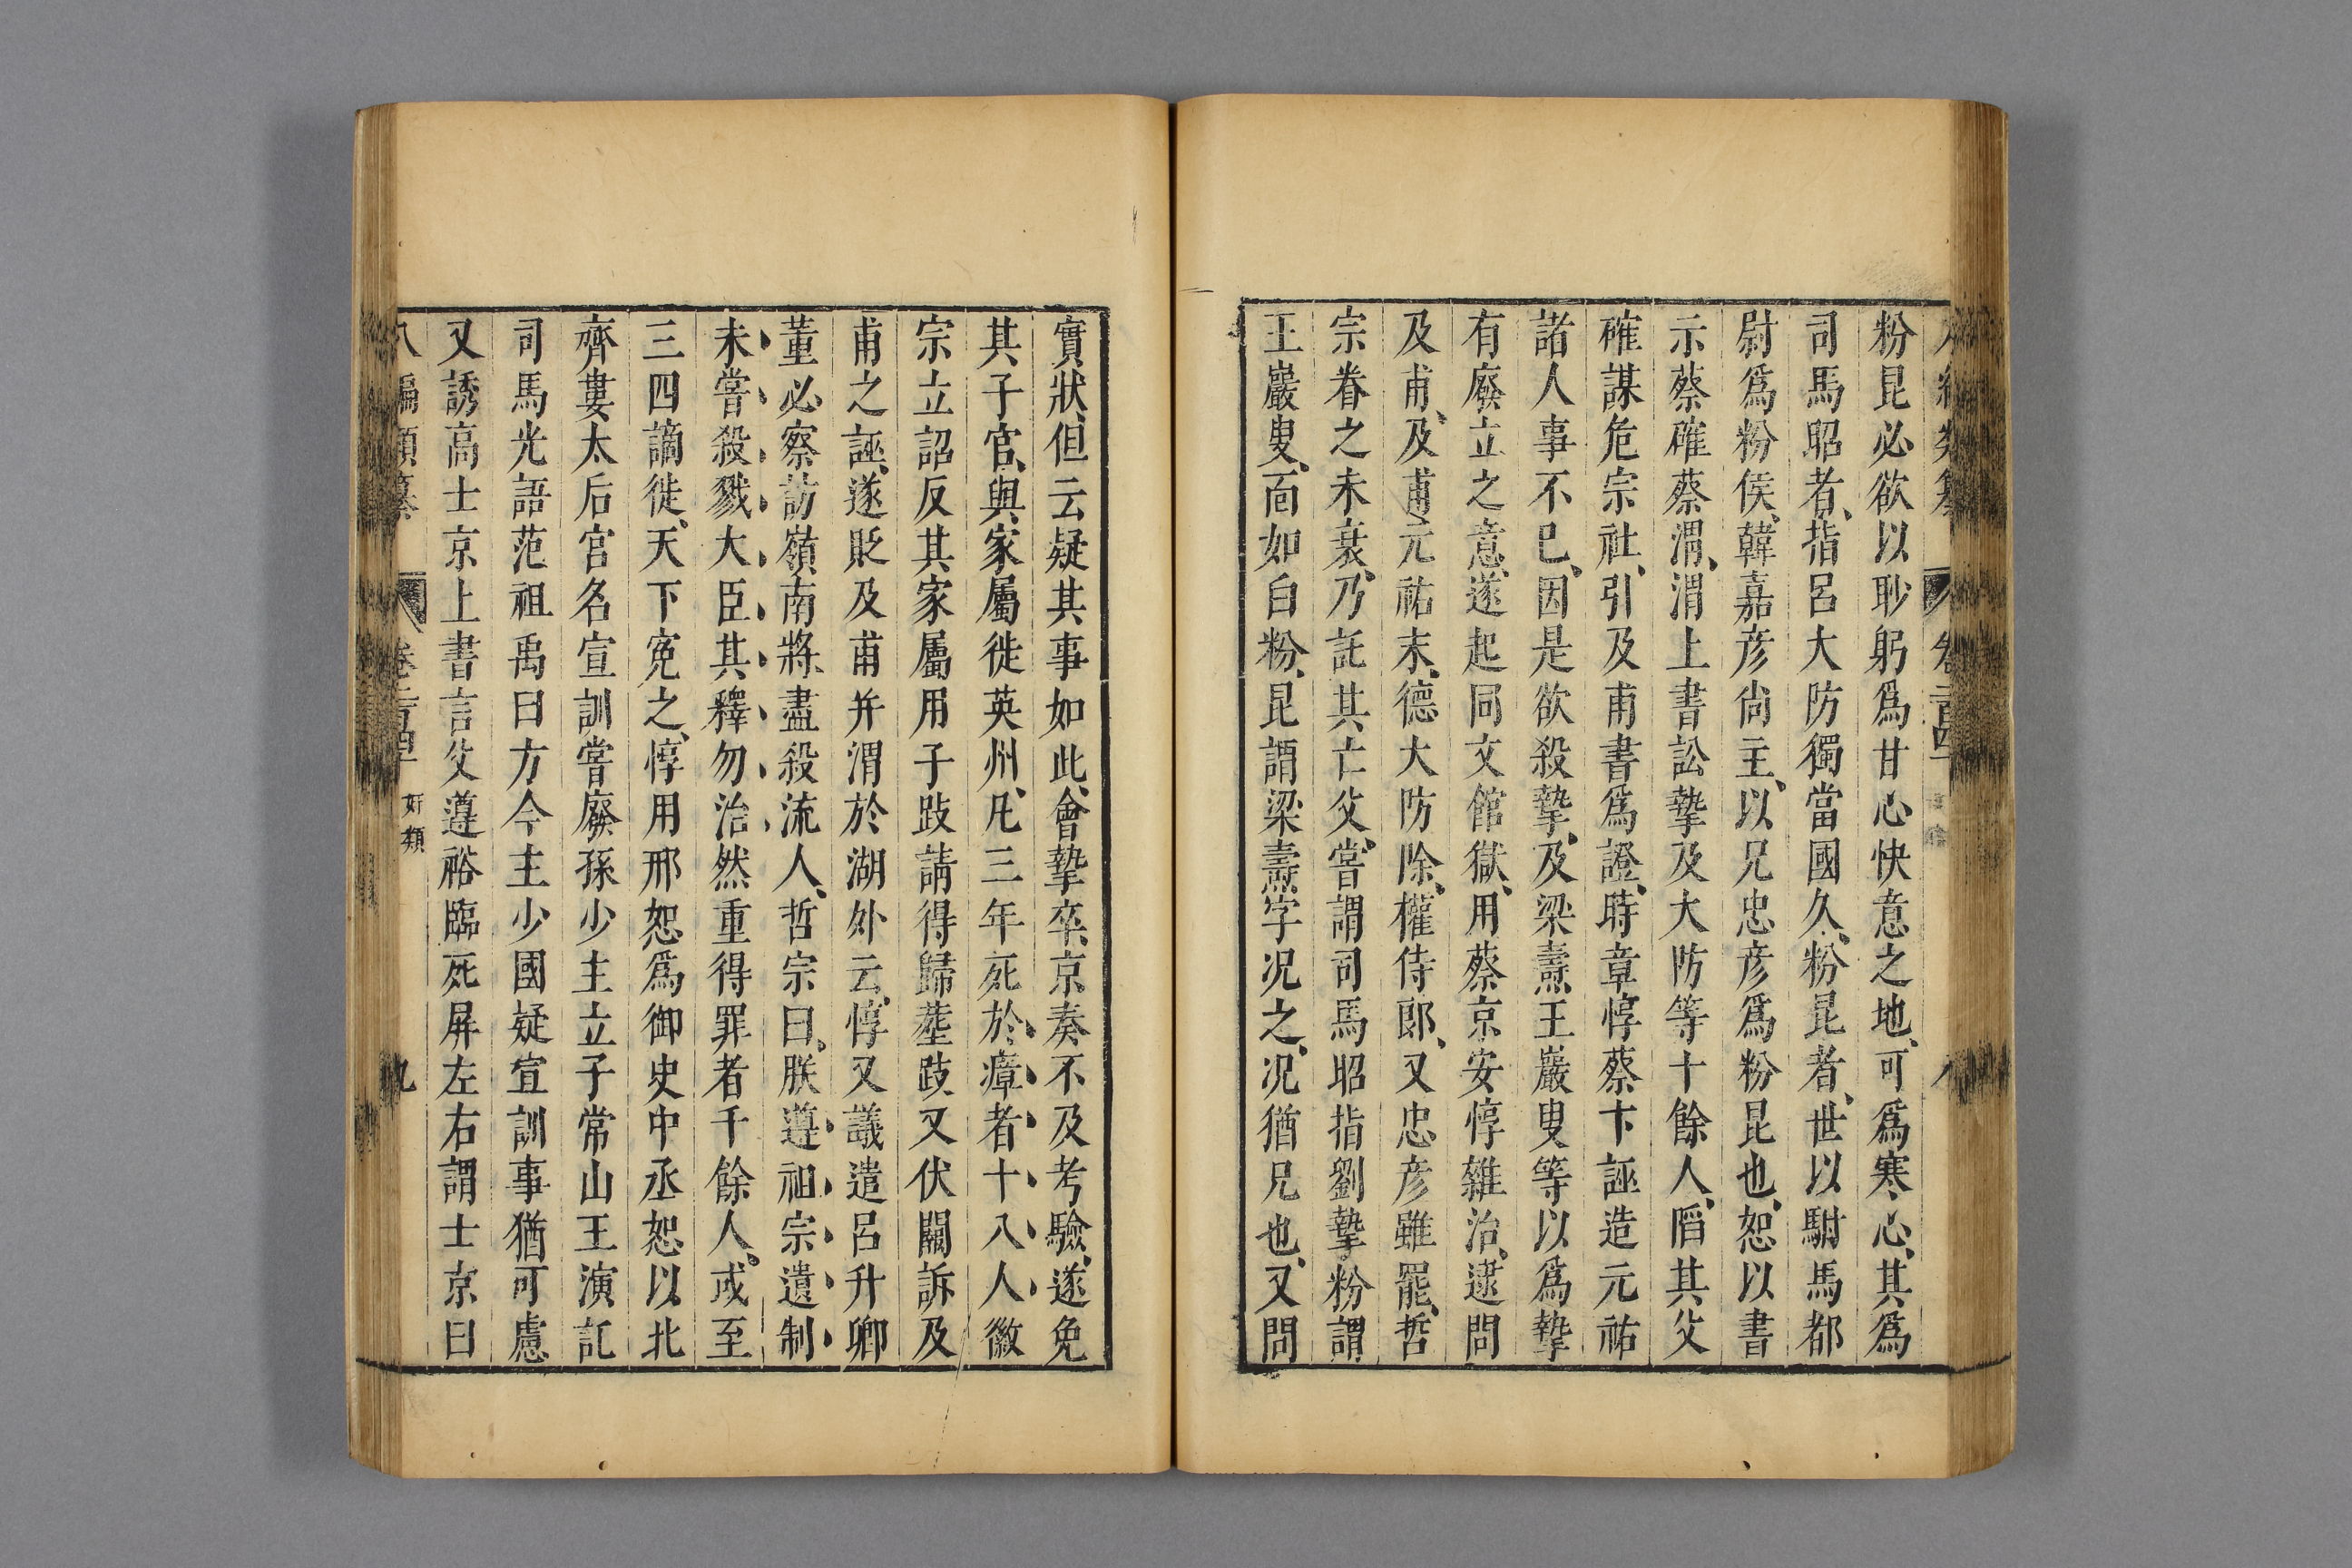 粉昆必欲以眇躬爲甘心快意之地、可爲寒心、其爲
司馬昭者、指呂大防獨當國久、粉昆者、世以駙馬都
尉爲粉侯、韓嘉彦尚主、以兄忠彦爲粉昆也、恕以書
示蔡確蔡渭、渭上書訟摯及大防等十餘人、䧟其父
確謀危宗社、引及甫書爲證、時章惇蔡卞誣造元祐
諸人事不已、因是欲殺摯、及梁燾王巖叟等、以爲摯
有廢立之意、遂起同文館獄、用蔡京安惇雜治、逮問
及甫、及甫元祐末、德大防除、權侍郎、又忠彦雖罷、哲
宗眷之未衰、乃託其亡父、嘗謂司馬昭指劉摯、粉謂
王巖叟、面如白粉、昆謂梁燾字況之、況猶兄也、又問
實狀、但云疑其事如此、會摯卒、京奏不及考驗、遂免
其子官、與家屬徙英州、凡三年死於瘴者十八人徽
宗立詔反其家屬用子跂請得歸塟跂又伏闕訴及
甫之誣、遂貶及甫并渭於湖外云、惇又議遣呂升卿
董必察訪嶺南將盡殺流人、哲宗曰、朕遵祖宗遺制
未嘗殺戮大臣其釋勿治、然重得罪者千餘人、或至
三四謫徙、天下寃之、惇用邢恕爲御史中丞恕以北
齊婁太后宮名宣訓嘗廢孫少主立子常山王演託
司馬光語范祖禹曰方今主少國疑宣訓事猶可慮
又誘高士京上書言父遵裕臨死屏左右謂士京曰
八編類纂 卷二百四 奸類 九